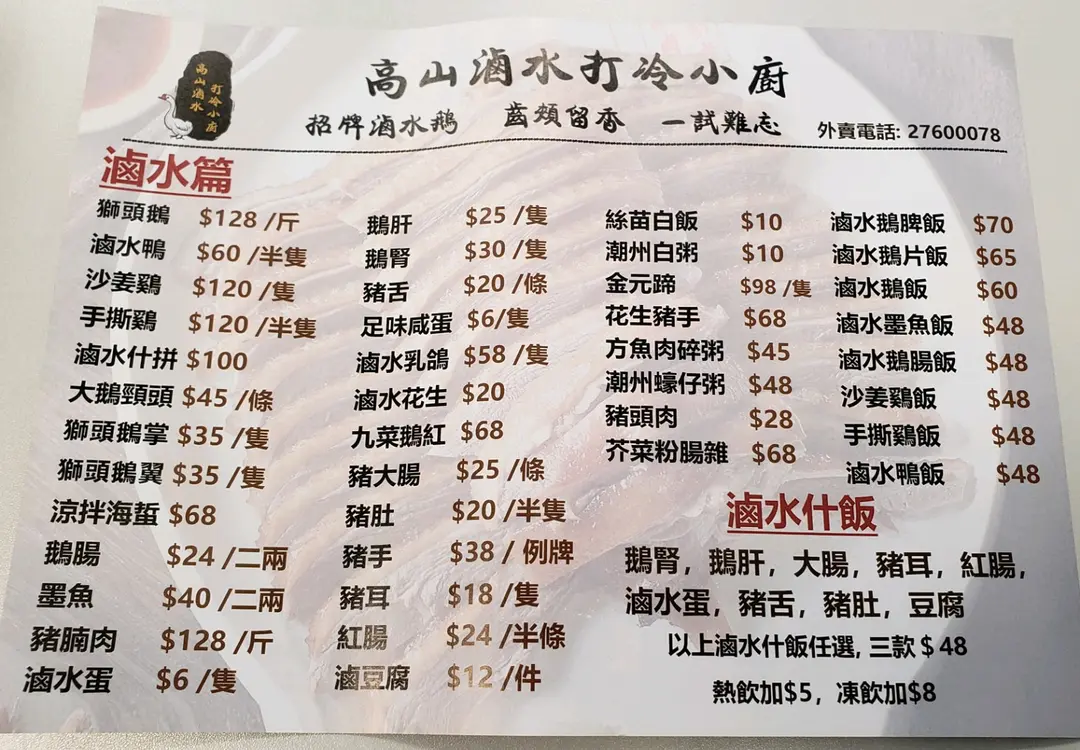 高山滷水打冷小廚
高山滷水
打冷小廚
招牌滷水鵝 齒頰留香 一試難忘 外賣電話: 27600078
滷水篇
獅頭鵝 $128 /斤
滷水鴨 $60 /半隻
沙姜鷄 $120 /隻
手撕鷄 $120 /半隻
滷水什拼 $100
大鵝頸頭 $45 /條
獅頭鵝掌 $35 /隻
獅頭鵝翼 $35 /隻
涼拌海蜇 $68
鵝腸 $24 /二兩
墨魚 $40 /二兩
豬腩肉 $128 /斤
滷水蛋 $6 /隻
鵝肝 $25 /隻
鵝腎 $30 /隻
豬舌 $20 /條
足味咸蛋 $6/隻
滷水乳鴿 $58 /隻
滷水花生 $20
九菜鵝紅 $68
豬大腸 $25 /條
豬肚 $20 /半隻
豬手 $38 / 例牌
豬耳 $18 /隻
紅腸 $24 /半條
滷豆腐 $12 /件
絲苗白飯 $10
潮州白粥 $10
金元蹄 $98 /隻
花生豬手 $68
方魚肉碎粥 $45
潮州蠔仔粥 $48
豬頭肉 $28
芥菜粉腸雜 $68
滷水鵝脾飯 $70
滷水鵝片飯 $65
滷水鵝飯 $60
滷水墨魚飯 $48
滷水鵝腸飯 $48
沙姜鷄飯 $48
手撕鷄飯 $48
滷水鴨飯 $48
滷水什飯
鵝腎，鵝肝，大腸，豬耳，紅腸，
滷水蛋，豬舌，豬肚，豆腐
以上滷水什飯任選, 三款 $ 48
熱飲加$5，凍飲加$8